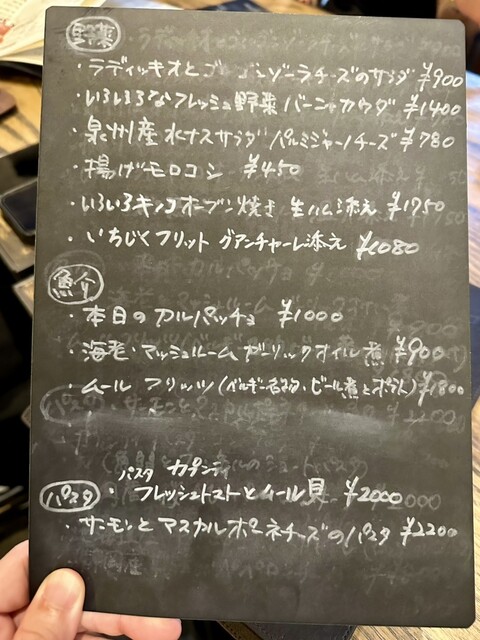 野菜
・ラディッキオとゴルゴンゾーラチーズのサラダ ¥900
・いろいろなフレッシュ野菜 バーニャカウダ ¥1400
・泉州産 水ナスサラダ パルミジャーノチーズ ¥780
・揚げモロコシ ¥450
・いろいろキノコオーブン焼き 生ハム添え ¥1750
・いちじくフリット グアンチャーレ添え ¥1080
魚介
・本日のカルパッチョ ¥1000
・海老・マッシュルーム ガーリックオイル煮 ¥900
・ムール フリッツ (ベルギー名物・ビール煮とポテト) ¥1800
パスタ カプンティ
パスタ ・フレッシュトマトとムール貝 ¥2000
・サーモンとマスカルポーネチーズのパスタ ¥2200